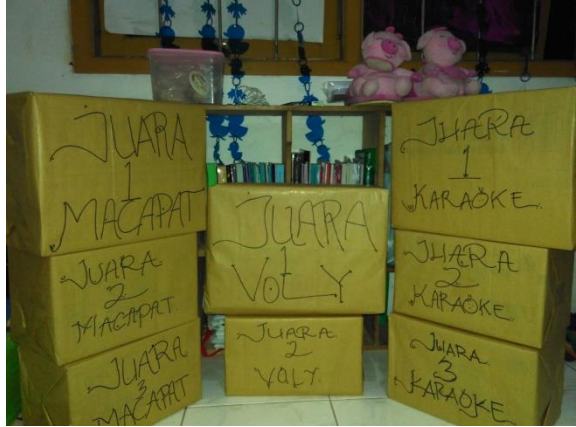 JUARA
1
MACAPAT
JUARA
2
MACAPAT
JUARA
3
MACAPAT
JUARA
1
VOLY
JUARA
2
VOLY
JUARA
1
KARAOKE.
JUARA
2
KARAOKE
JUARA
3
KARAOKE